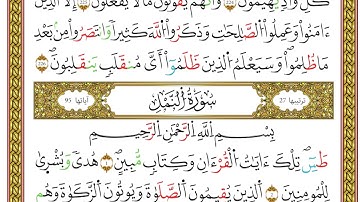 كُلِّ وَادٍ يَهِيمُونَ ۝ وَأَنَّهُمْ يَقُولُونَ مَا لَا يَفْعَلُونَ ۝ إِلَّا الَّذِينَ
ءَامَنُوا۟ وَعَمِلُوا۟ الصَّٰلِحَٰتِ وَذَكَرُوا۟ اللَّهَ كَثِيرًا وَانتَصَرُوا۟ مِنۢ بَعْدِ
مَا ظُلِمُوا۟ وَسَيَعْلَمُ الَّذِينَ ظَلَمُوٓا۟ أَىَّ مُنقَلَبٍ يَنقَلِبُونَ ۝
ترتيبها 27 سُورَةُ النَّمْلِ آياتها 93
بِسْمِ اللَّهِ الرَّحْمَٰنِ الرَّحِيمِ
طسٓ تِلْكَ ءَايَٰتُ الْقُرْءَانِ وَكِتَابٍ مُّبِينٍ ۝ هُدًى وَبُشْرَىٰ
لِلْمُومِنِينَ ۝ الَّذِينَ يُقِيمُونَ الصَّلَوٰةَ وَيُوتُونَ الزَّكَوٰةَ وَهُم